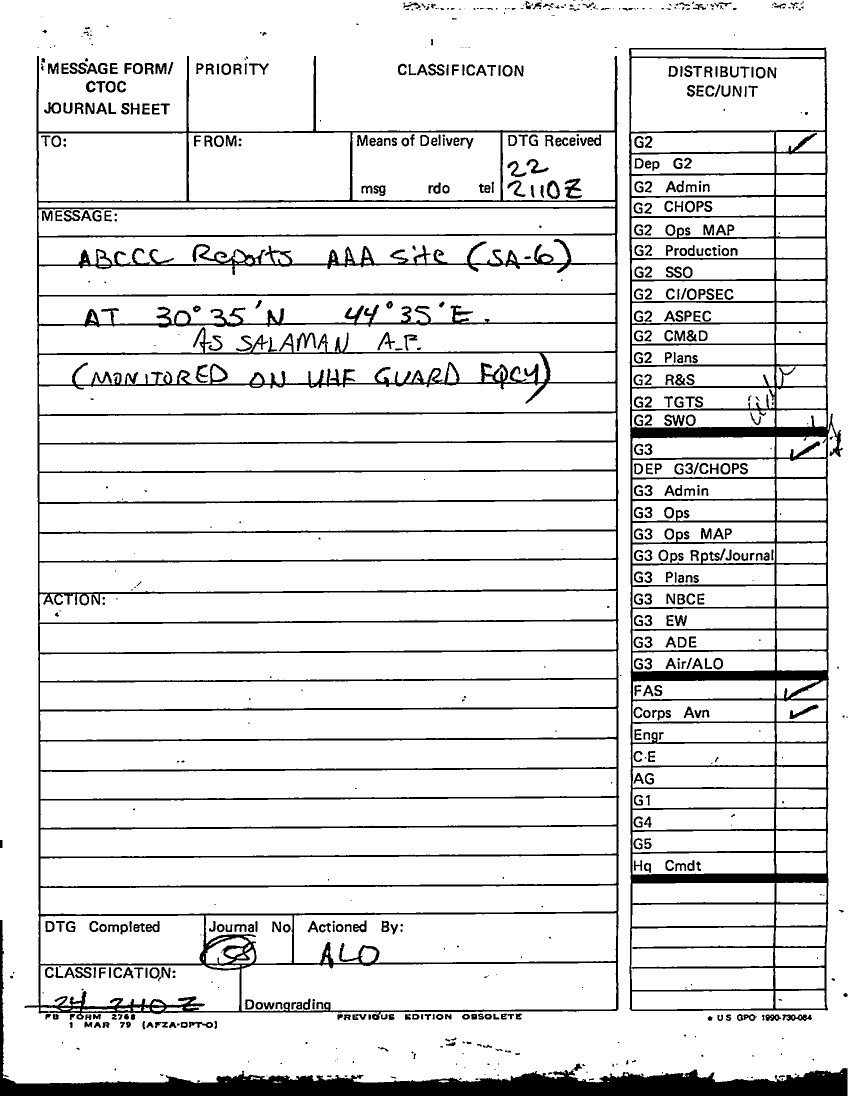 MESSAGE FORM/
CTOC
JOURNAL SHEET
PRIORITY
CLASSIFICATION
TO:
FROM:
Means of Delivery
msg rdo tel
DTG Received
22
2110Z
MESSAGE:
ABCCC Reports AAA Site (SA-6)
AT 30°35'N 44°35'E.
AS SALAMAN A.F.
(MONITORED ON UHF GUARD FQCY)
ACTION:
DTG Completed
Journal No.
58
Actioned By:
ALO
CLASSIFICATION:
24 2110 Z
Downgrading
FB FORM 2768
1 MAR 79 (AFZA-DPT-O)
PREVIOUS EDITION OBSOLETE
DISTRIBUTION
SEC/UNIT
G2
Dep G2
G2 Admin
G2 CHOPS
G2 Ops MAP
G2 Production
G2 SSO
G2 CI/OPSEC
G2 ASPEC
G2 CM&D
G2 Plans
G2 R&S
G2 TGTS
G2 SWO
G3
DEP G3/CHOPS
G3 Admin
G3 Ops
G3 Ops MAP
G3 Ops Rpts/Journal
G3 Plans
G3 NBCE
G3 EW
G3 ADE
G3 Air/ALO
FAS
Corps Avn
Engr
C-E
AG
G1
G4
G5
Hq Cmdt
* US GPO 1990-730-064